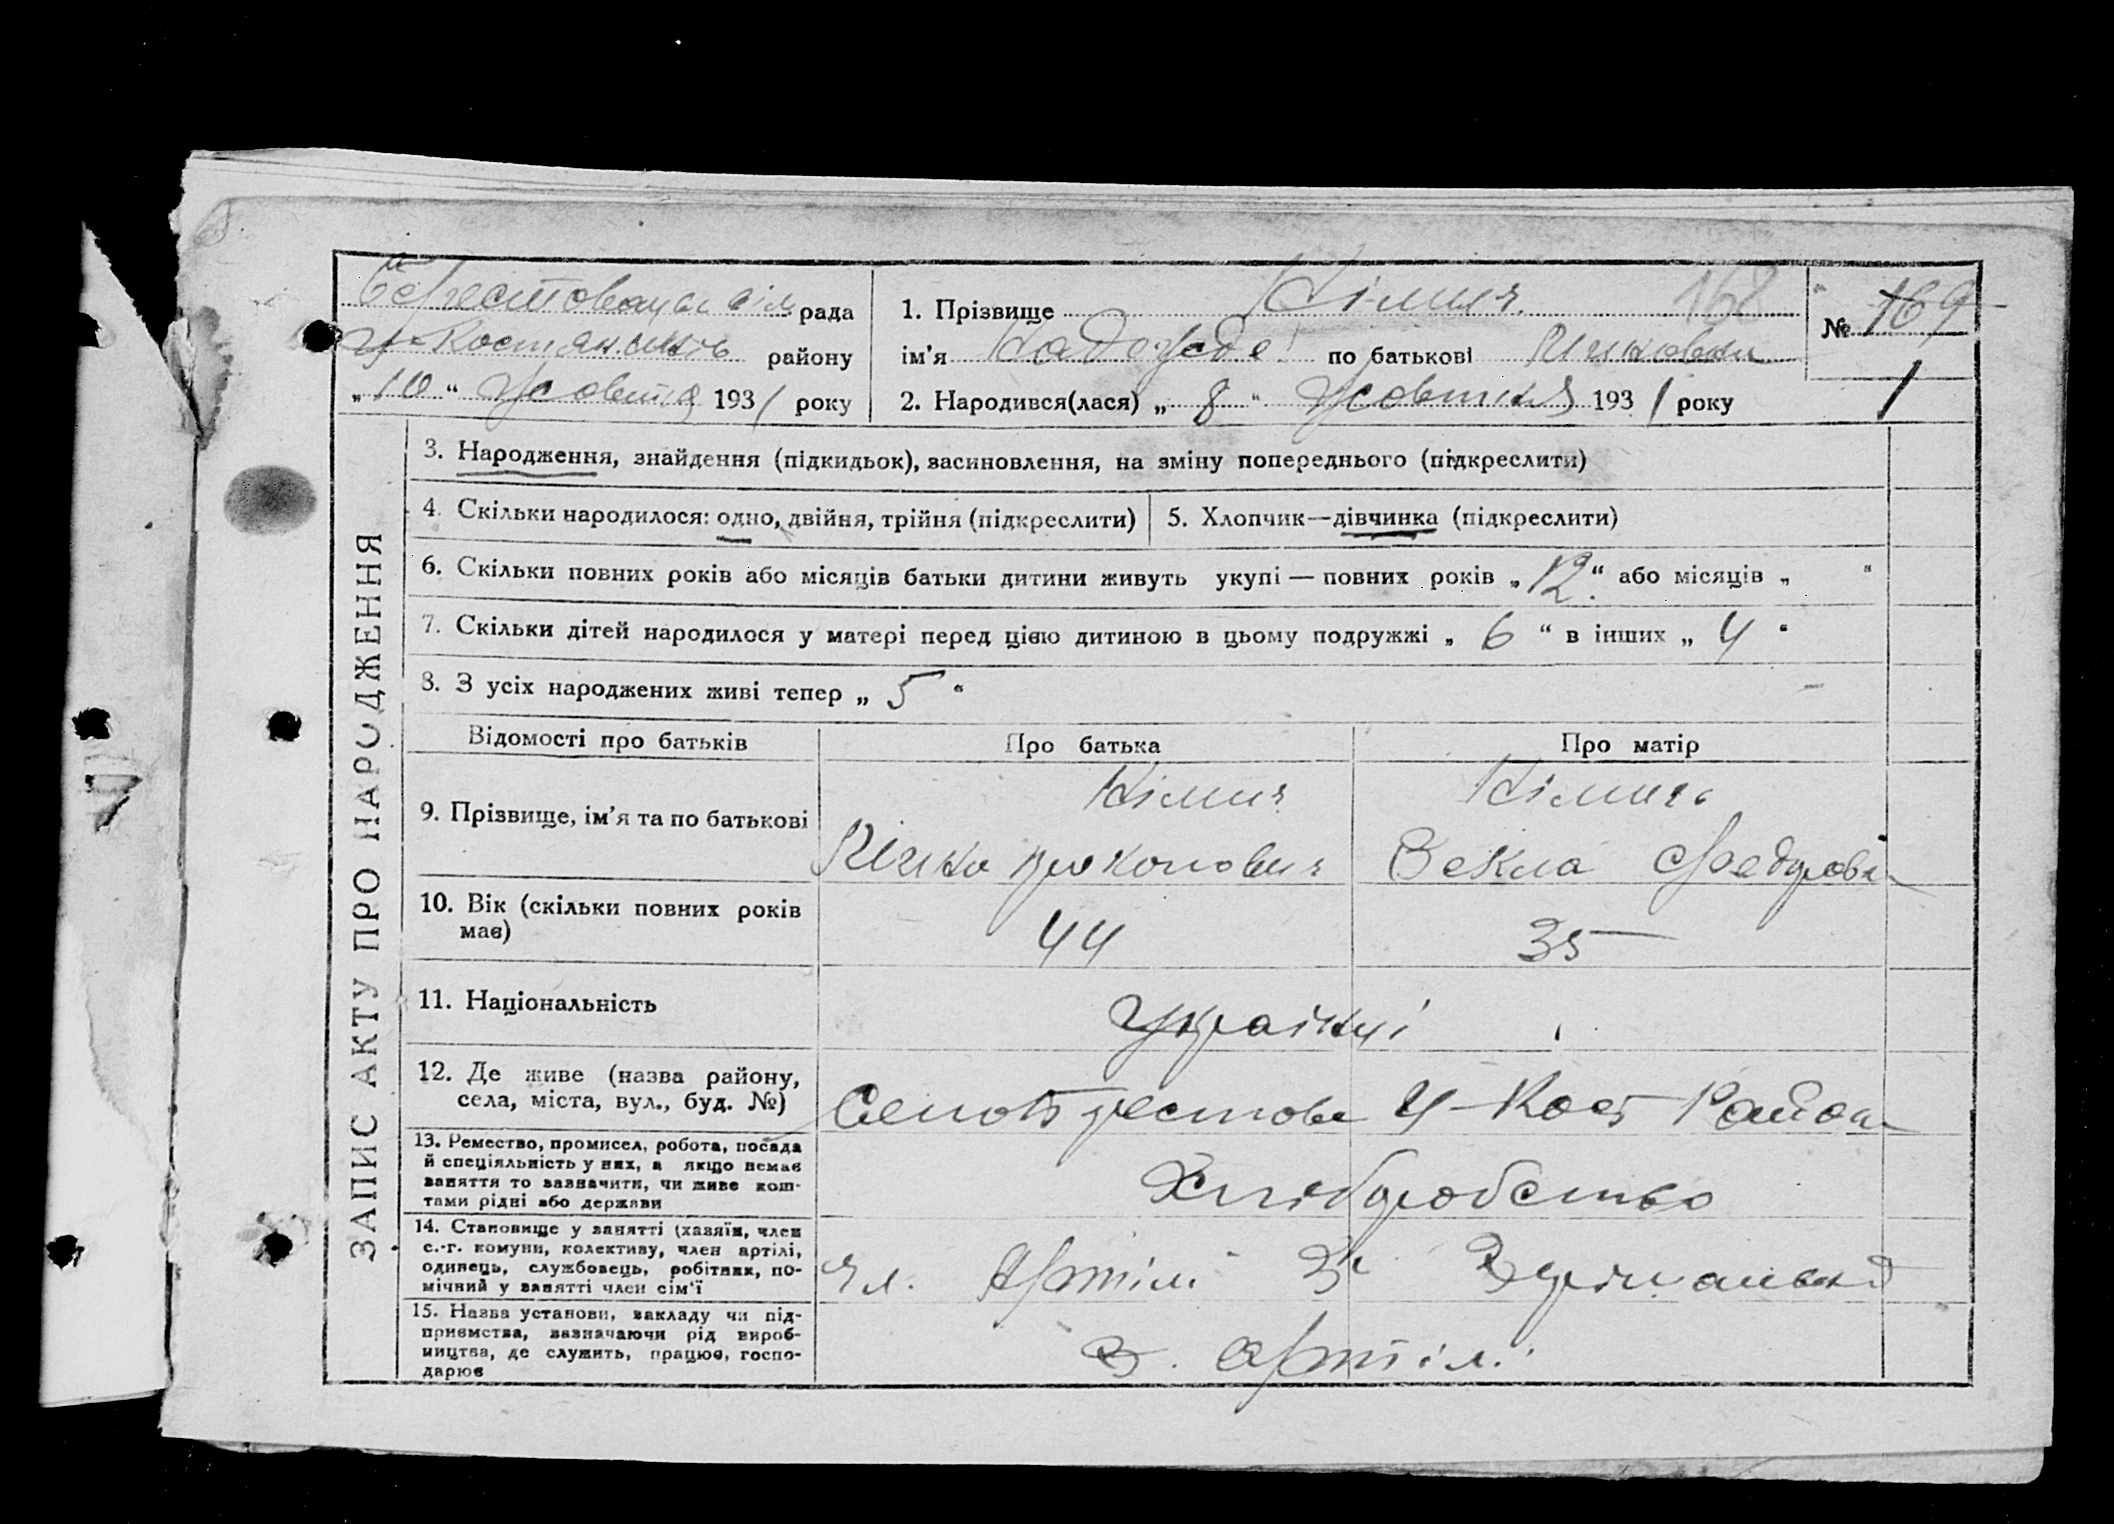 рада
районну
„ 10 “ Жовтня 1931 року
1. Прізвище Кімич 168
ім'я по батькові
2. Народився(лася) „ 8 “ Жовтня 1931 року
№ 169
1
ЗАПИС АКТУ ПРО НАРОДЖЕННЯ
3. Народження, знайдення (підкидьок), засиновлення, на зміну попереднього (підкреслити)
4. Скільки народилося: одно, двійня, трійня (підкреслити)
5. Хлопчик—дівчинка (підкреслити)
6. Скільки повних років або місяців батьки дитини живуть укупі — повних років „ 12 “ або місяців „ “
7. Скільки дітей народилося у матері перед цією дитиною в цьому подружжі „ 6 “ в інших „ 4 “
8. З усіх народжених живі тепер „ 5 “
Відомості про батьків
Про батька
Про матір
9. Прізвище, ім'я та по батькові
Кімич
Кімичь
Векла Федоровн
10. Вік (скільки повних років має)
44
35
11. Національність
Українці
12. Де живе (назва району, села, міста, вул., буд. №)
Район
13. Ремество, промисел, робота, посада
й спеціяльність у них, а якщо немає
заняття то зазначити, чи живе кош-
тами рідні або держави
Хліборобство
14. Становище у занятті (хазяїн, член
с.-г. комуни, колективу, член артілі,
одинець, службовець, робітник, по-
мічний у занятті член сім'ї
Чл. Артілі
15. Назва установи, закладу чи під-
приємства, зазначаючи рід вироб-
ництва, де служить, працює, госпо-
дарює
Артілі